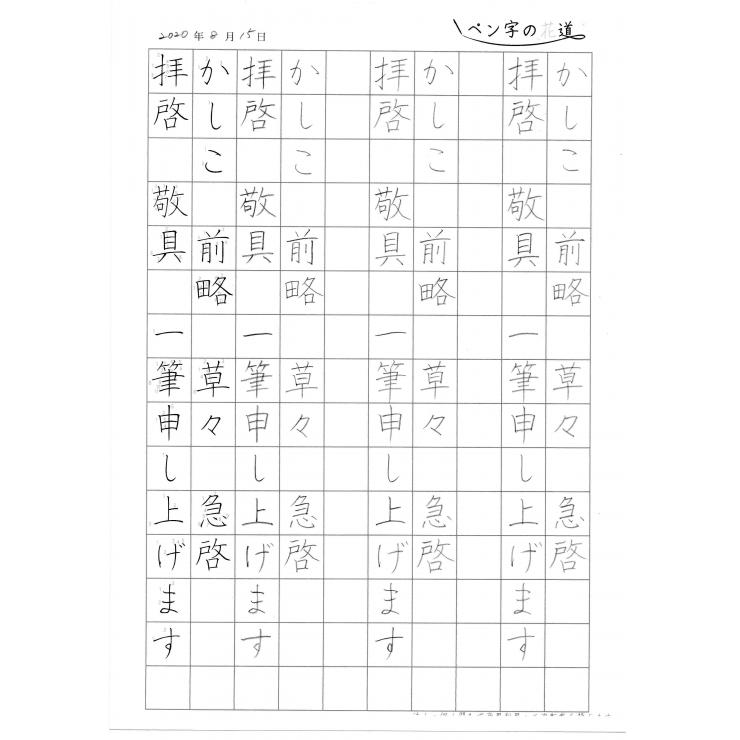 2020年8月15日
ペン字の花道
かしこ 前略 草々 急啓
拝啓 敬具 一筆申し上げます
かしこ 前略 草々 急啓
拝啓 敬具 一筆申し上げます
かしこ 前略 草々 急啓
拝啓 敬具 一筆申し上げます
かしこ 前略 草々 急啓
拝啓 敬具 一筆申し上げます